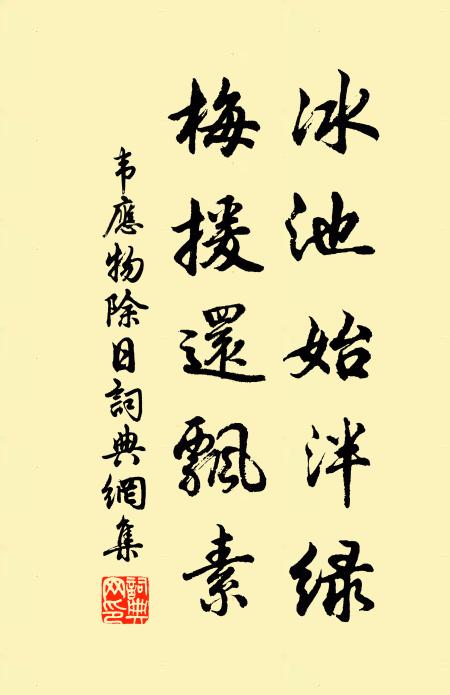 冰池始泮绿
梅援還飄素
韦應物除日詞典網集
詞典网印